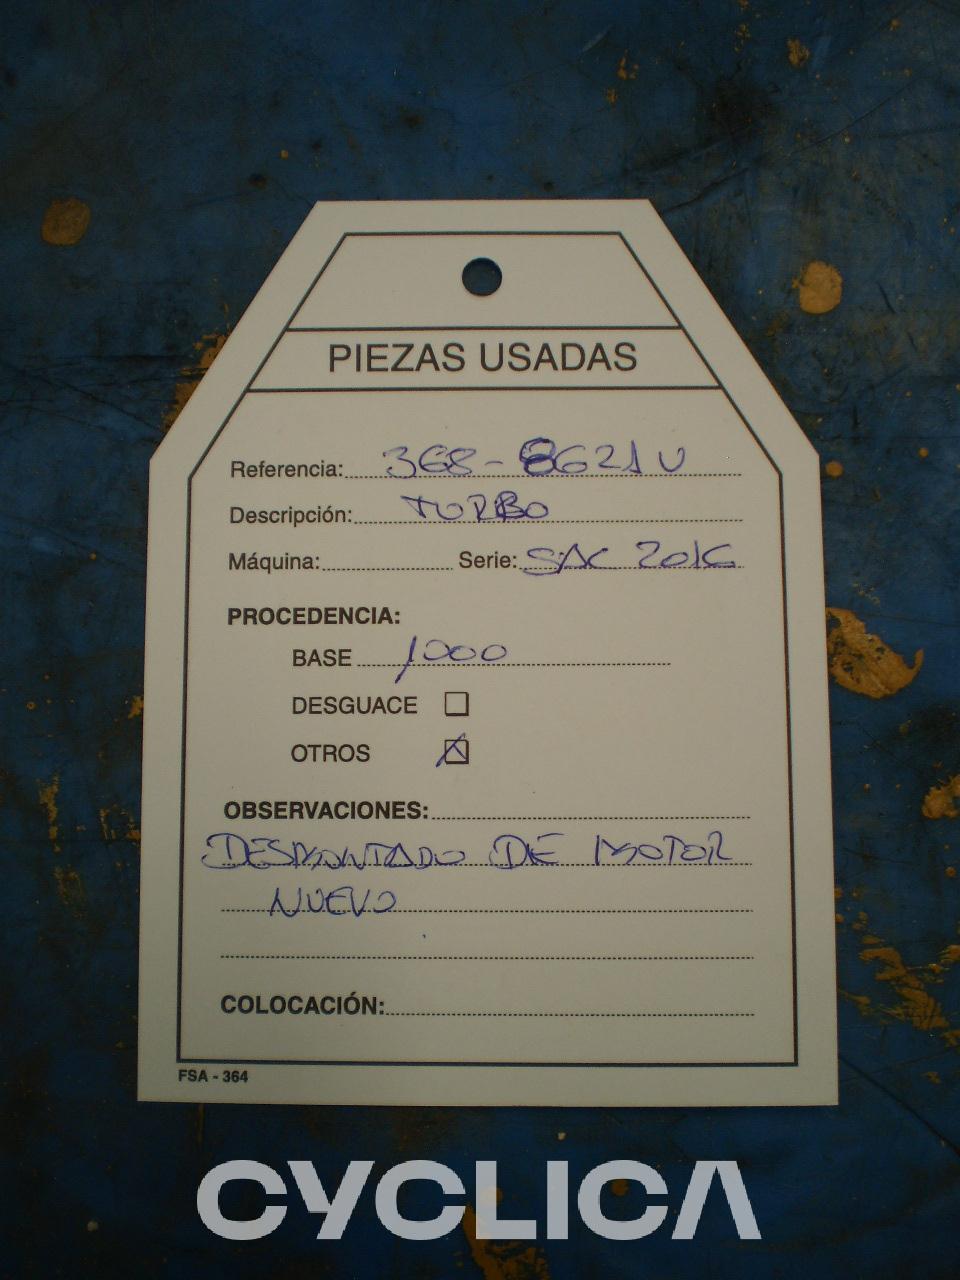 PIEZAS USADAS
Referencia: 368-8621U
Descripción: TURBO
Máquina: Serie: SAC 2016
PROCEDENCIA:
BASE 1000
DESGUACE
OTROS X
OBSERVACIONES:
DESMONTADO DE MOTOR
NUEVO
COLOCACIÓN:
FSA - 364
CYCLICA